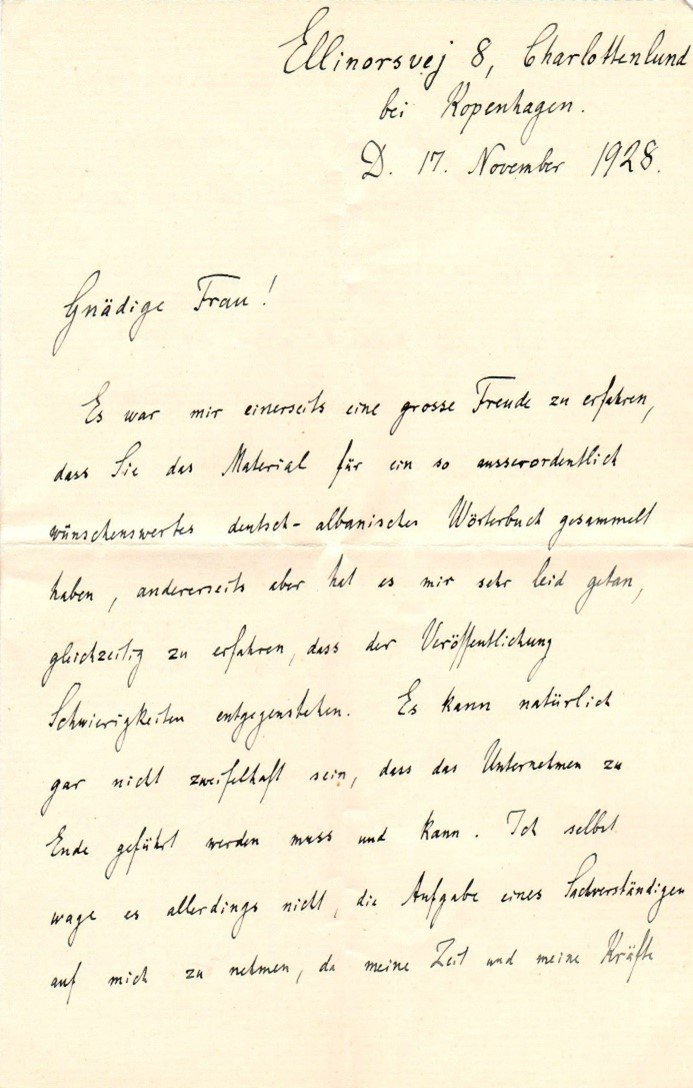 Ellinorsvej 8, Charlottenlund
bei Kopenhagen.
D. 17. November 1928.
Gnädige Frau!
Es war mir einerseits eine grosse Freude zu erfahren,
dass Sie das Material für ein so ausserordentlich
wünschenswertes deutsch-albanisches Wörterbuch gesammelt
haben, andererseits aber hat es mir sehr leid getan,
gleichzeitig zu erfahren, dass der Veröffentlichung
Schwierigkeiten entgegenstehen. Es kann natürlich
gar nicht zweifelhaft sein, dass das Unternehmen zu
Ende geführt werden muss und kann. Ich selbst
wage es allerdings nicht, die Aufgabe eines Sachverständigen
auf mich zu nehmen, da meine Zeit und meine Kräfte